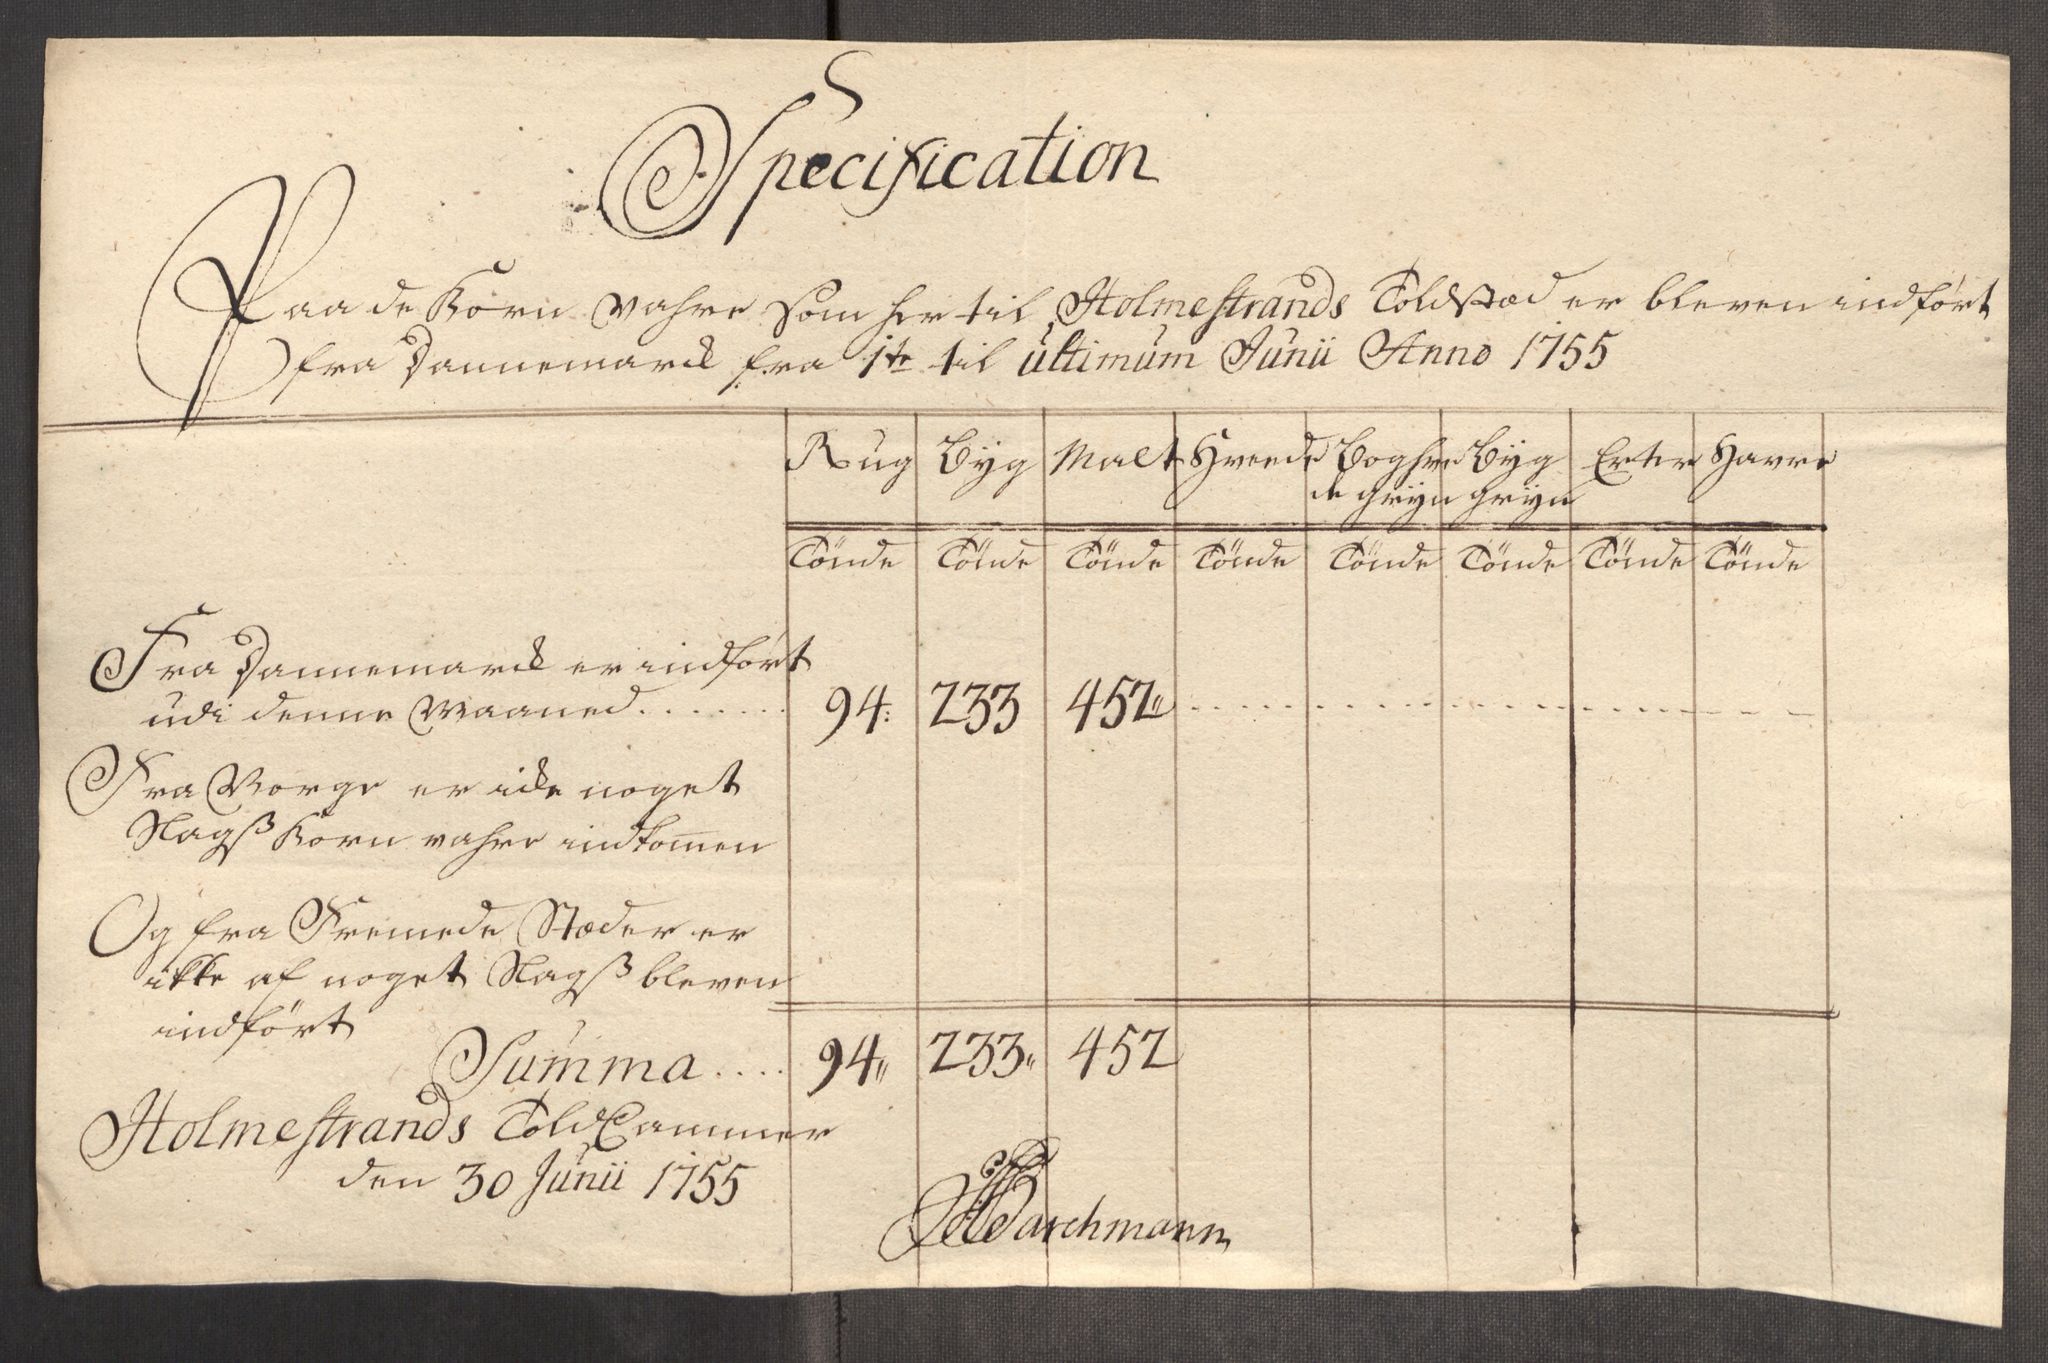 Specification
Paa de Korn Vahre Som her til Holmestrands Toldstæd er bleven indført
fra Dannemarck fra 1te til ultimum Junii Anno 1755
Rug Byg Malt Hveede Boghve Byg Erter Havre
de gryn gryn
Tönde Tönde Tönde Tönde Tönde Tönde Tönde Tönde
Fra Dannemarck er indført
udi denne Maaned . . . . . . . 94: 233 452"
Fra Norge er icke noget
Slagß Korn vahre indkom̅en
Og fra Fremede Stæder er
ikke af noget Slagß bleven
indført
Summa . . . . 94" 233" 452
Holmestrands Told Cammer
den 30 Junii 1755
Barchmann